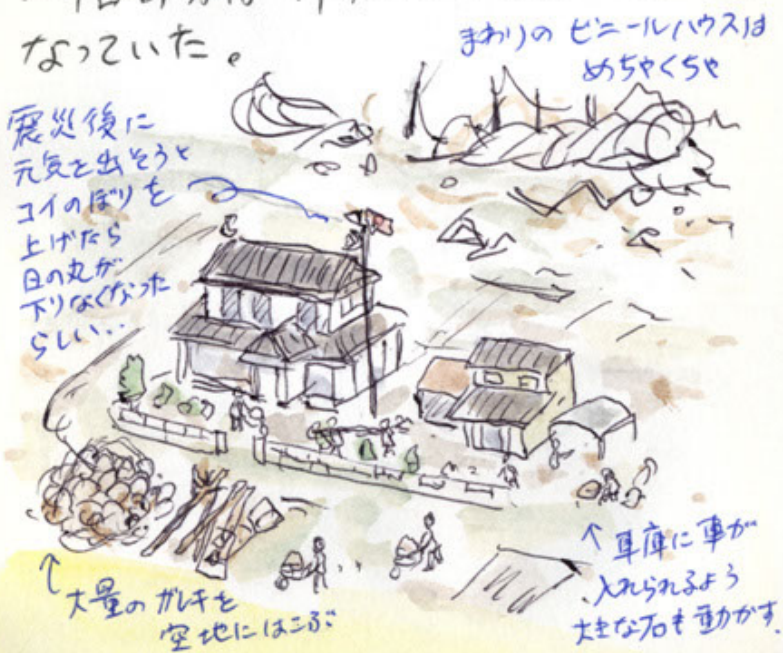 なっていた。
まわりの ビニールハウスは
めちゃくちゃ
震災後に
元気を出そうと
コイのぼりを
上げたら
日の丸が
下りなくなった
らしい..
↑ 大量の ガレキを
空地にはこぶ
↑ 車庫に車が
入れられるよう
大きな石も動かす.